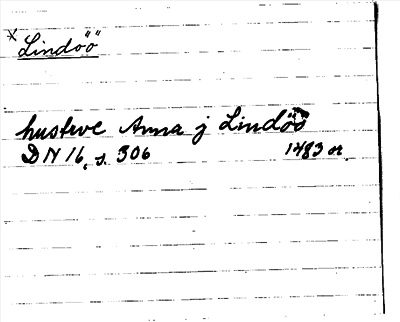 * Lindöö
hustrve Anna j Lindöö
DN 16, s. 306 1483 or.